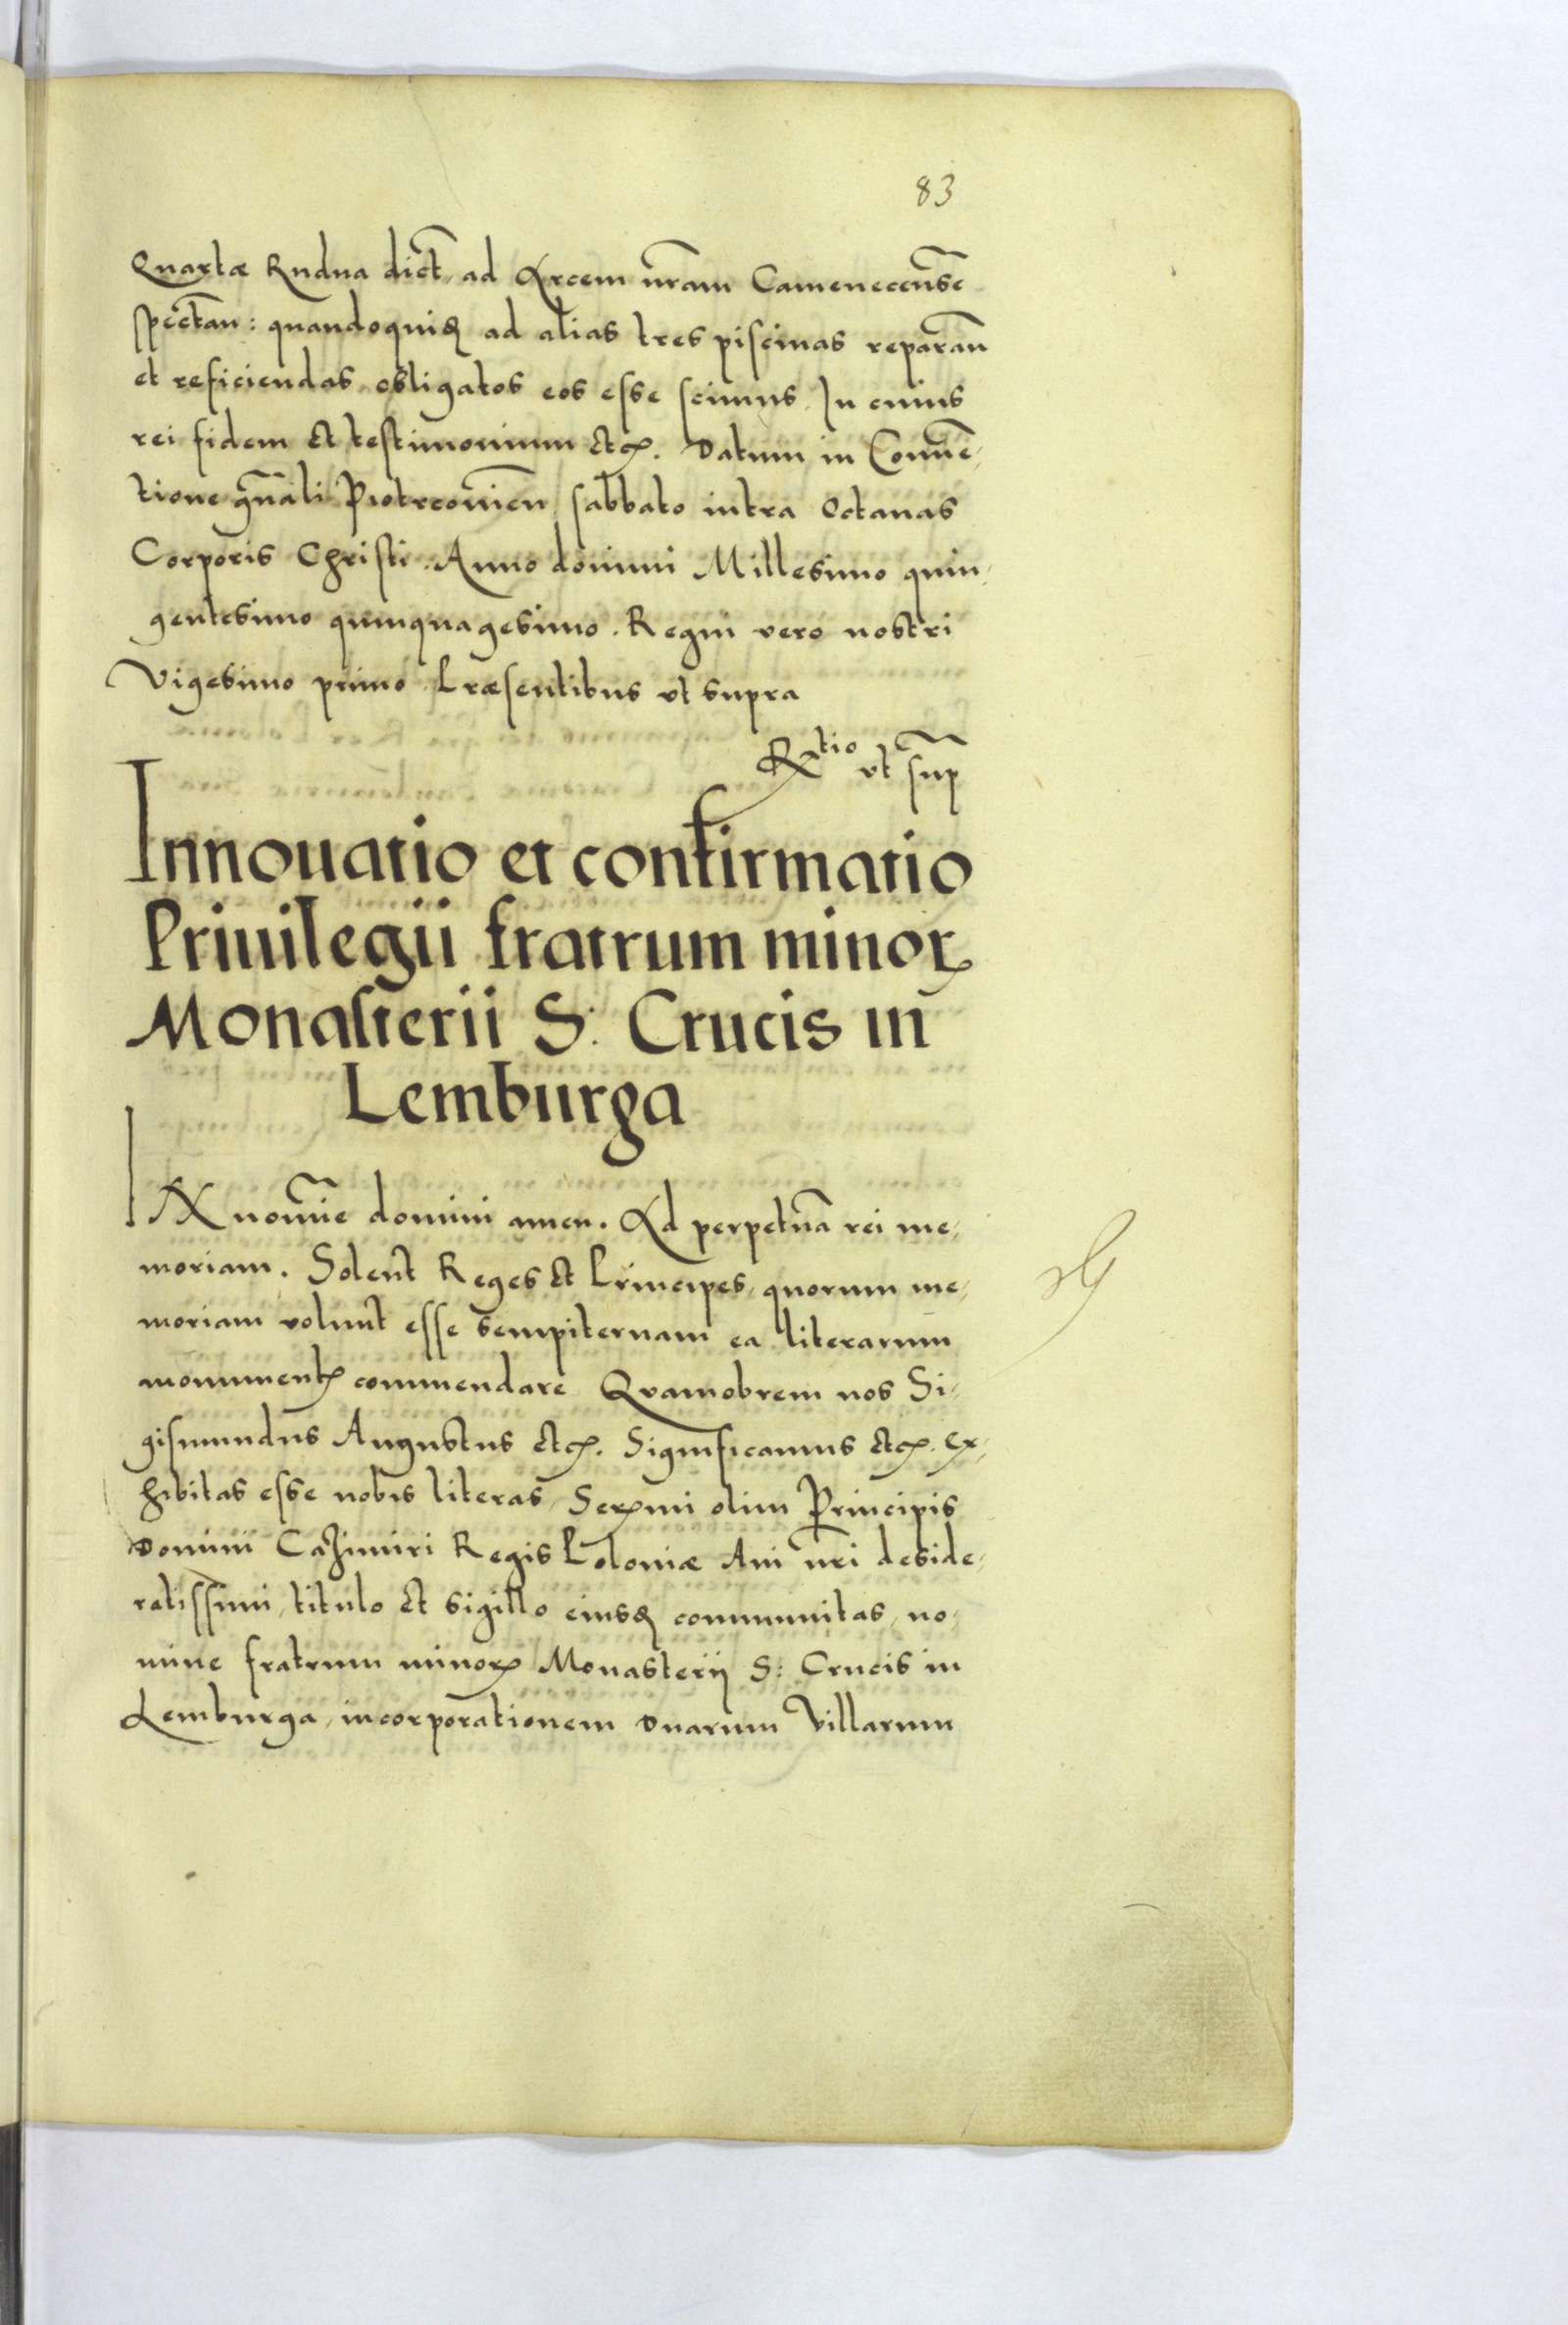 83
Quartæ Rudna dict̃, ad Arcem nr̃am Camenecenñse
spectan̄: quandoquiꝫ ad alias tres piscinas reparan̄
et reficiendas obligatos eos esse scimus. In cuius
rei fidem et testimonium etcꝫ. Datum in Conuē,
tione gn̄ali Piotrcouien̄ sabbato intra Octauas
Corporis Christi. Anno domini Millesimo quin,
gentesimo quinquagesimo. Regni vero nostri
Vigesimo primo. Præsentibus vt supra
Rꝫtio vt sup̃
Innouatio et confirmatio
Priuilegii fratrum minorꝫ
Monasterii S: Crucis in
Lemburga
IN nom̃ie domini amen. Ad perpetuã rei me,
moriam. Solent̃ Reges et Principes, quorum me,
moriam volunt̃ esse sempiternam ea literarum
monumentꝫ commendare Quamobrem nos Si,
gismundus Augustus etcꝫ. Significamus etcꝫ. ex,
hibitas esse nobis literas, Serꝫmi olim Principis
Domini Cazimiri Regis Poloniæ Aui nr̃i deside,
ratissimi, titulo et sigillo eiusꝫ communitas, no,
mine fratrum minorꝫ Monasterij S: Crucis in
Lemburga, incorporationem duarum Villarum